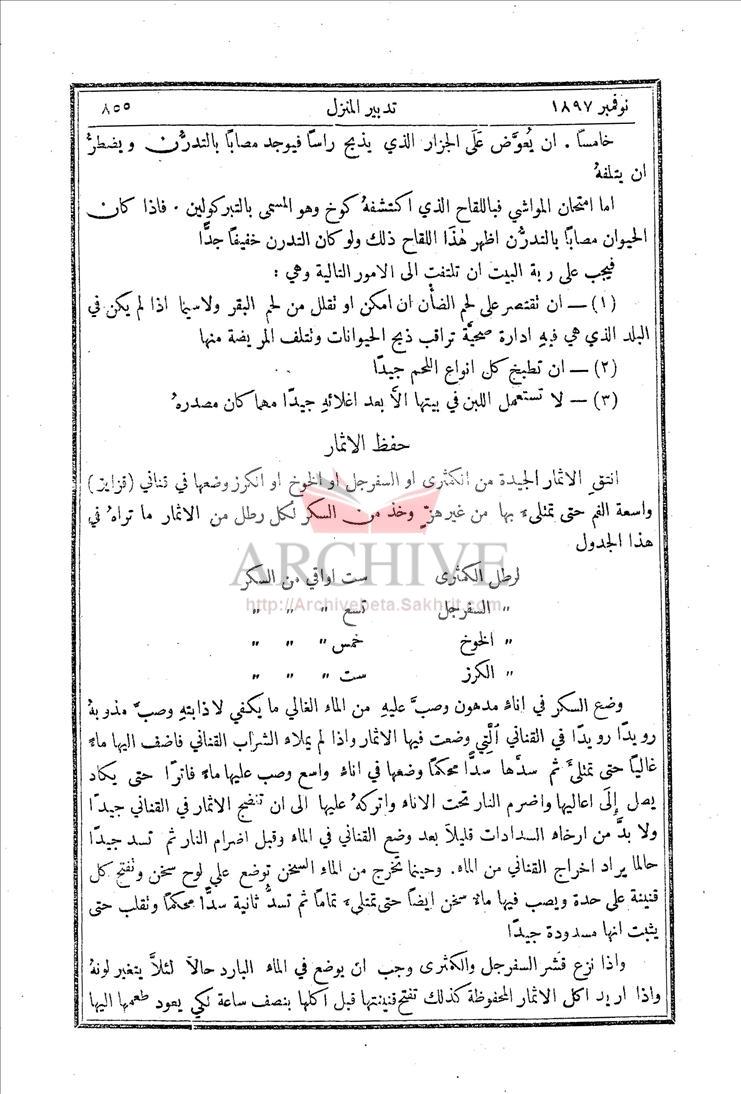 نوفمبر ١٨٩٧ تدبير المنزل ٨٥٥
خامساً . ان يُعوَّض عَلَى الجزار الذي يذبح راساً فيوجد مصاباً بالتدرُّن ويضطرُّ
ان يتلفهُ
اما امتحان المواشي فباللقاح الذي اكتشفهُ كوخ وهو المسمى بالتبركولين . فاذا كان
الحيوان مصاباً بالتدرُّن اظهر هٰذا اللقاح ذلك ولو كان التدرن خفيفاً جدًّا
فيجب على ربة البيت ان تلتفت الى الامور التالية وهي :
(١) — ان نقتصر على لحم الضأن ان امكن او نقلل من لحم البقر ولاسيما اذا لم يكن في
البلد الذي هي فيهِ ادارة صحيَّة تراقب ذبح الحيوانات ونتلف المريضة منها
(٢) — ان تطبخ كل انواع اللحم جيدًا
(٣) — لا تستعمل اللبن في بيتها الاَّ بعد اغلائهِ جيدًا مهما كان مصدرهُ
حفظ الاثمار
انتقِ الاثمار الجيدة من الكمثرى او السفرجل او الخوخ او الكرز وضعها في قناني (قزايز)
واسعة الفم حتى تمتلئ بها من غير هزّ وخذ من السكر لكل رطل من الاثمار ما تراهُ في
هذا الجدول
ARCHIVE
لرطل الكمثرى ست اواقي من السكر
http://Archivebeta.Sakhrit.com
" السفرجل تسع " " "
" الخوخ خمس " " "
" الكرز ست " " "
وضع السكر في اناء مدهون وصبَّ عليهِ من الماء الغالي ما يكفي لاذابتهِ وصبَّ مذوبهُ
رويدًا رويدًا في القناني اَلَّتِي وضعت فيها الاثمار واذا لم يملاء الشراب القناني فاضف اليها ماءً
غاليًا حتى تمتلئَ ثم سدَّها سدًّا محكمًا وضعها في اناء واسع وصب عليها ماءً فاترًا حتى يكاد
يصل إِلَى اعاليها واضرم النار تحت الاناء واتركهُ عليها الى ان تنضج الاثمار في القناني جيدًا
ولا بدَّ من ارخاء السدادات قليلاً بعد وضع القناني في الماء وقبل اضرام النار ثم تسد جيدًا
حالما يراد اخراج القناني من الماء. وحينما تخرج من الماء السخن توضع علي لوح سخن ونفتح كل
قنينة على حدة ويصب فيها ماءٌ سخن ايضًا حتى تمتلئ تمامًا ثم تسدُّ ثانية سدًّا محكمًا ونقلب حتى
يثبت انها مسدودة جيدًا
واذا نزع قشر السفرجل والكمثرى وجب ان يوضع في الماء البارد حالاً لئلاَّ يتغير لونهُ
واذا اريد اكل الاثمار المحفوظة كذلك تفتح قنينتها قبل اكلها بنصف ساعة لكي يعود طعمها اليها